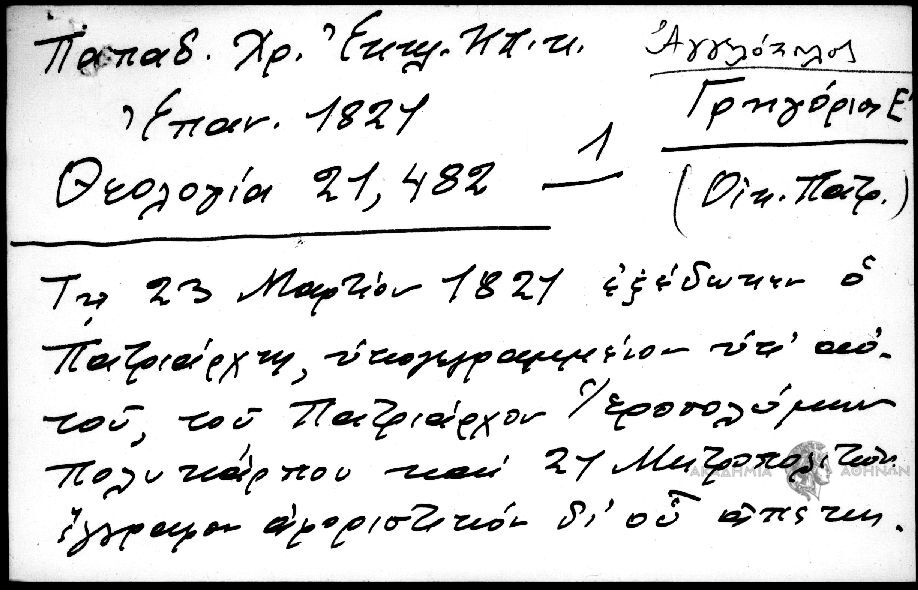 Παπαδ. Χρ. Ἐκκλ. Ἠπ. κ.
Ἐπαν. 1821
Θεολογία 21, 482
1
Ἀγγελόπουλος
Γρηγόριος Ε'
(Οἰκ. Πατρ.)
Τῃ 23 Μαρτίου 1821 ἐξέδωκεν ὁ
Πατριάρχης, ὑπογεγραμμένον ὑπ' αὐ-
τοῦ, τοῦ Πατριάρχου Ἱεροσολύμων
Πολυκάρπου καὶ 21 Μητροπολιτῶν
ἔγγραφον ἀφοριστικόν δι' οὗ
ΑΚΑΔΗΜΙΑ ΑΘΗΝΩΝ